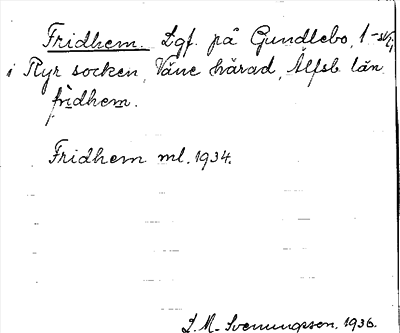 Fridhem. Lgf. på Gundlebo, 1-
i Ryr socken, Väne härad, Älfsb län.
fridhem.
Fridhem ml. 1934.
L. M. Svenungsson, 1936.